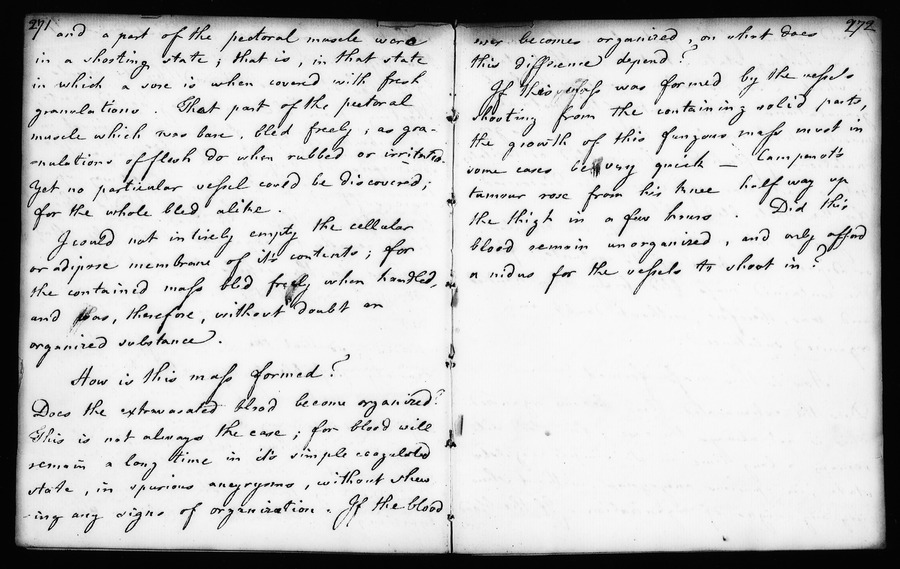 271
and a part of the pectoral muscle were
in a shooting state; that is, in that state
in which a sore is when covered with fresh
granulations. That part of the pectoral
muscle which was bare, bled freely; as gra-
-nulations of flesh do when rubbed or irritated.
Yet no particular vessel could be discovered;
for the whole bled alike.
I could not intirely empty the cellular
or adipose membrane of its contents; for
the contained mass bled freely when handled,
and was, therefore, without doubt an
organized substance.
How is this mass formed?
Does the extravasated blood become organized?
This is not always the case; for blood will
remain a long time in it's simple coagulated
state, in spurious aneurysms, without shew
-ing any signs of organization. If the blood
272
ever becomes organized, on what does
this difference depend?
If this mass was formed by the vessels
shooting from the containing solid parts,
the growth of this fungous mass must in
some cases be very quick — Campanot's
tumour rose from his knee half way up
the thigh in a few hours. Did this
blood remain unorganized, and only afford
a nidus for the vessels to shoot in?